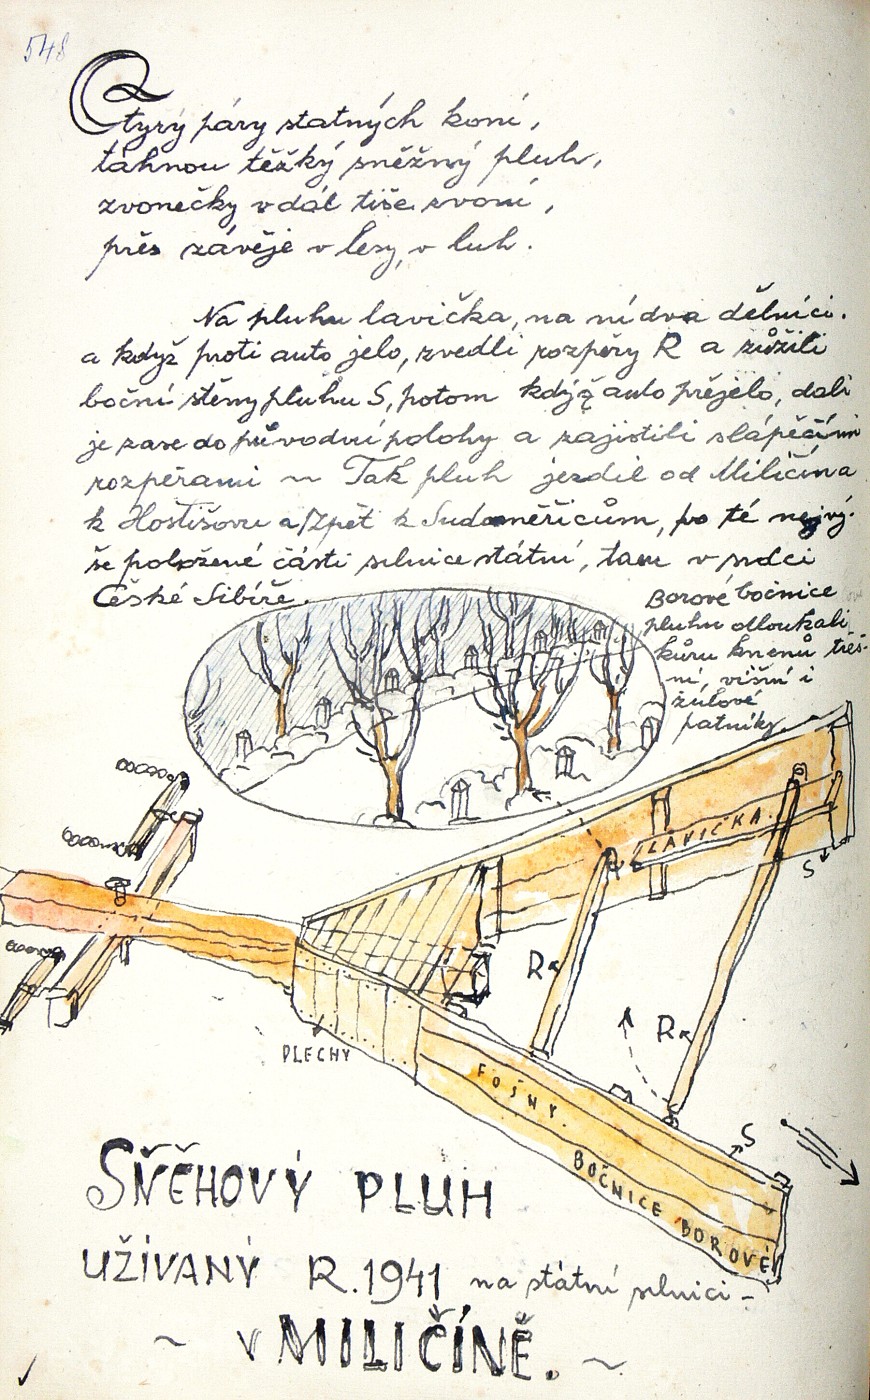 548
Čtyrý páry statných koní,
táhnou těžký sněžný pluh,
zvonečky vdál tiše zvoní,
přes závěje v lesy, v luh.
Na pluhu lavička, na ní dva dělníci.
a když proti auto jelo, zvedli rozpěry R a zúžili
boční stěny pluhu S, potom když auto přejelo, dali
je zase do původní polohy a zajistili
rozpěrami ~ Tak pluh jezdil od Miličína
k Hoštišovu a zpět k Sudoměřicům, po té nejvý-
še položené části silnice státní, tam v srdci
České Sibiře.
Borové bočnice
pluhu otloukali
kůru kmenů třeš-
ní, višní i
žulové
patníky.
LAVIČKA
S
R
R
PLECHY
FOŠNY.
S
BOČNICE BOROVÉ
SŇĚHOVÝ PLUH
UŽÍVANÝ R.1941 na státní silnici -
~ V MILIČÍNĚ. ~